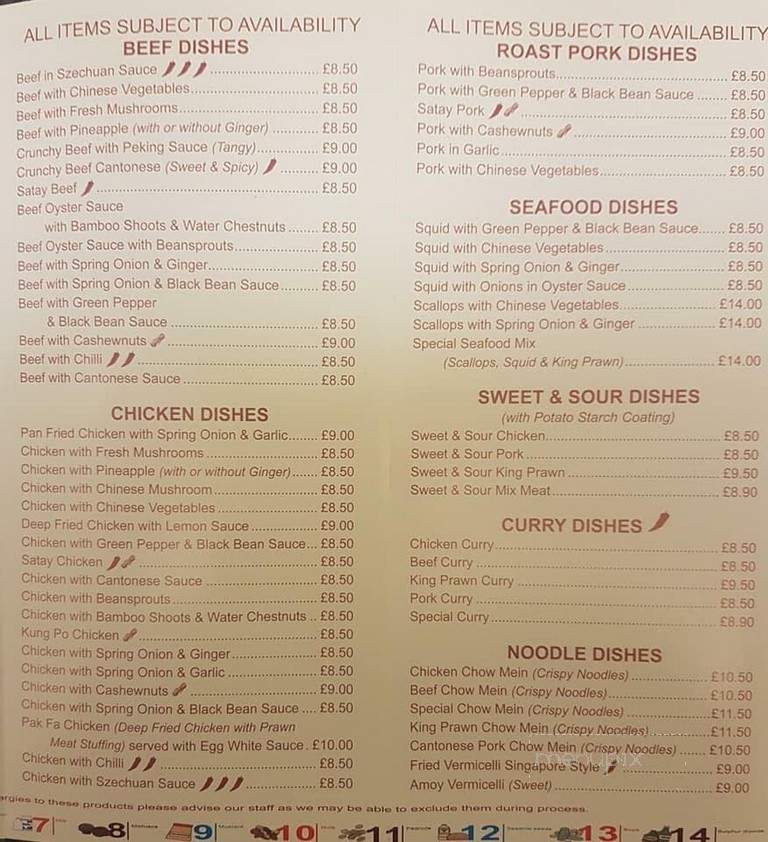 ALL ITEMS SUBJECT TO AVAILABILITY
BEEF DISHES
Beef in Szechuan Sauce ........ £8.50
Beef with Chinese Vegetables........ £8.50
Beef with Fresh Mushrooms........ £8.50
Beef with Pineapple (with or without Ginger) ........ £8.50
Crunchy Beef with Peking Sauce (Tangy)........ £9.00
Crunchy Beef Cantonese (Sweet & Spicy) ........ £9.00
Satay Beef ........ £8.50
Beef Oyster Sauce
with Bamboo Shoots & Water Chestnuts ........ £8.50
Beef Oyster Sauce with Beansprouts........ £8.50
Beef with Spring Onion & Ginger........ £8.50
Beef with Spring Onion & Black Bean Sauce ........ £8.50
Beef with Green Pepper
& Black Bean Sauce ........ £8.50
Beef with Cashewnuts ........ £9.00
Beef with Chilli ........ £8.50
Beef with Cantonese Sauce ........ £8.50
CHICKEN DISHES
Pan Fried Chicken with Spring Onion & Garlic....... £9.00
Chicken with Fresh Mushrooms ........ £8.50
Chicken with Pineapple (with or without Ginger)...... £8.50
Chicken with Chinese Mushroom ........ £8.50
Chicken with Chinese Vegetables ........ £8.50
Deep Fried Chicken with Lemon Sauce ........ £9.00
Chicken with Green Pepper & Black Bean Sauce... £8.50
Satay Chicken ........ £8.50
Chicken with Cantonese Sauce ........ £8.50
Chicken with Beansprouts ........ £8.50
Chicken with Bamboo Shoots & Water Chestnuts .. £8.50
Kung Po Chicken ........ £8.50
Chicken with Spring Onion & Ginger........ £8.50
Chicken with Spring Onion & Garlic ........ £8.50
Chicken with Cashewnuts ........ £9.00
Chicken with Spring Onion & Black Bean Sauce .... £8.50
Pak Fa Chicken (Deep Fried Chicken with Prawn
Meat Stuffing) served with Egg White Sauce . £10.00
Chicken with Chilli ........ £8.50
Chicken with Szechuan Sauce ........ £8.50
ALL ITEMS SUBJECT TO AVAILABILITY
ROAST PORK DISHES
Pork with Beansprouts........ £8.50
Pork with Green Pepper & Black Bean Sauce ........ £8.50
Satay Pork ........ £8.50
Pork with Cashewnuts ........ £9.00
Pork in Garlic ........ £8.50
Pork with Chinese Vegetables........ £8.50
SEAFOOD DISHES
Squid with Green Pepper & Black Bean Sauce....... £8.50
Squid with Chinese Vegetables........ £8.50
Squid with Spring Onion & Ginger........ £8.50
Squid with Onions in Oyster Sauce........ £8.50
Scallops with Chinese Vegetables........ £14.00
Scallops with Spring Onion & Ginger ........ £14.00
Special Seafood Mix
(Scallops, Squid & King Prawn)........ £14.00
SWEET & SOUR DISHES
(with Potato Starch Coating)
Sweet & Sour Chicken........ £8.50
Sweet & Sour Pork ........ £8.50
Sweet & Sour King Prawn ........ £9.50
Sweet & Sour Mix Meat........ £8.90
CURRY DISHES
Chicken Curry........ £8.50
Beef Curry ........ £8.50
King Prawn Curry ........ £9.50
Pork Curry ........ £8.50
Special Curry ........ £8.90
NOODLE DISHES
Chicken Chow Mein (Crispy Noodles) ........ £10.50
Beef Chow Mein (Crispy Noodles)........ £10.50
Special Chow Mein (Crispy Noodles) ........ £11.50
King Prawn Chow Mein (Crispy Noodles)........ £11.50
Cantonese Pork Chow Mein (Crispy Noodles) ...... £10.50
Fried Vermicelli Singapore Style ........ £9.00
Amoy Vermicelli (Sweet)........ £9.00
menupix
ergies to these products please advise our staff as we may be able to exclude them during process.
7 8 9 10 11 12 13 14